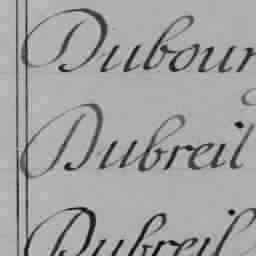 Dubour
Dubreil
Dubreil